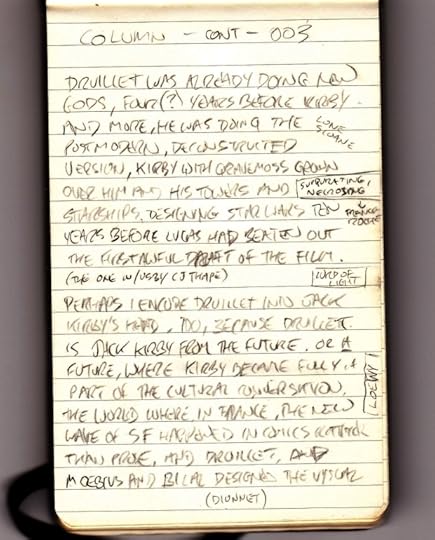 COLUMN - CONT - 003
DRUILLET WAS ALREADY DOING NEW
GODS, FOUR(?) YEARS BEFORE KIRBY.
AND MORE, HE WAS DOING THE
LONE
SLOANE
POSTMODERN, DECONSTRUCTED
VERSION, KIRBY WITH GRAVEMOSS GROWN
OVER HIM AND HIS TOWERS AND
SUPPURATING,
NECROSING
STARSHIPS. DESIGNING STAR WARS TEN
YEARS BEFORE LUCAS HAD BEATEN OUT
THE FIRST AWFUL DRAFT OF THE FILM.
(THE ONE IN/USBY CJ THAPE)
PERHAPS I ENCODE DRUILLET INTO JACK
KIRBY'S HEAD, TOO, BECAUSE DRUILLET
IS JACK KIRBY FROM THE FUTURE. OR A
FUTURE, WHERE KIRBY BECAME FULLY A
PART OF THE CULTURAL CONVERSATION.
THE WORLD WHERE IN FRANCE, THE NEW
WAVE OF SF HAPPENED IN COMICS RATHER
THAN PROSE, AND DRUILLET, AND
MOEBIUS AND BILAL DESIGNED THE VISUAL
(DIONNET)
LORD OF
LIGHT